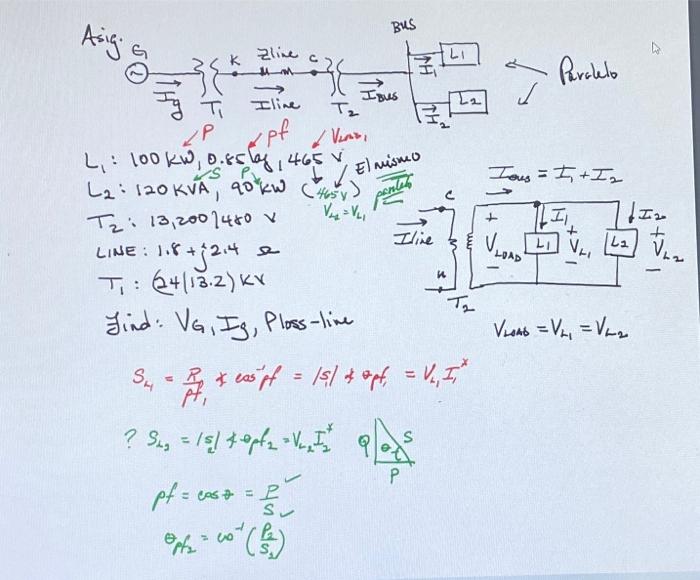 Asig.
G
K
Zline
C
BUS
I1
L1
Paralelo
Ig
T1
Iline
T2
IBUS
I2
L2
P
pf
VLOAD1
L1: 100 KW, 0.85 lag, 465 V
S
P
El mismo
L2: 120 KVA, 90 KW (465 V) paralelo
VL2 = VL1
T2: 13,200/480 V
LINE: 1.8 + j2.4 Ω
T1: (24/13.2) KV
Find: VG, Ig, Ploss-line
IBUS = I1 + I2
C
Iline
n
T2
+
VLOAD
−
I1
L1
+
VL1
−
I2
L2
+
VL2
−
VLOAD = VL1 = VL2
SL1 = P1/pf1 ∡ cos⁻¹pf = |S1| ∡ θpf1 = VL1 I1*
? SL2 = |S2| ∡ θpf2 = VL2 I2*
Q
θ
S
P
pf = cos θ = P/S
θpf2 = cos⁻¹(P2/S2)